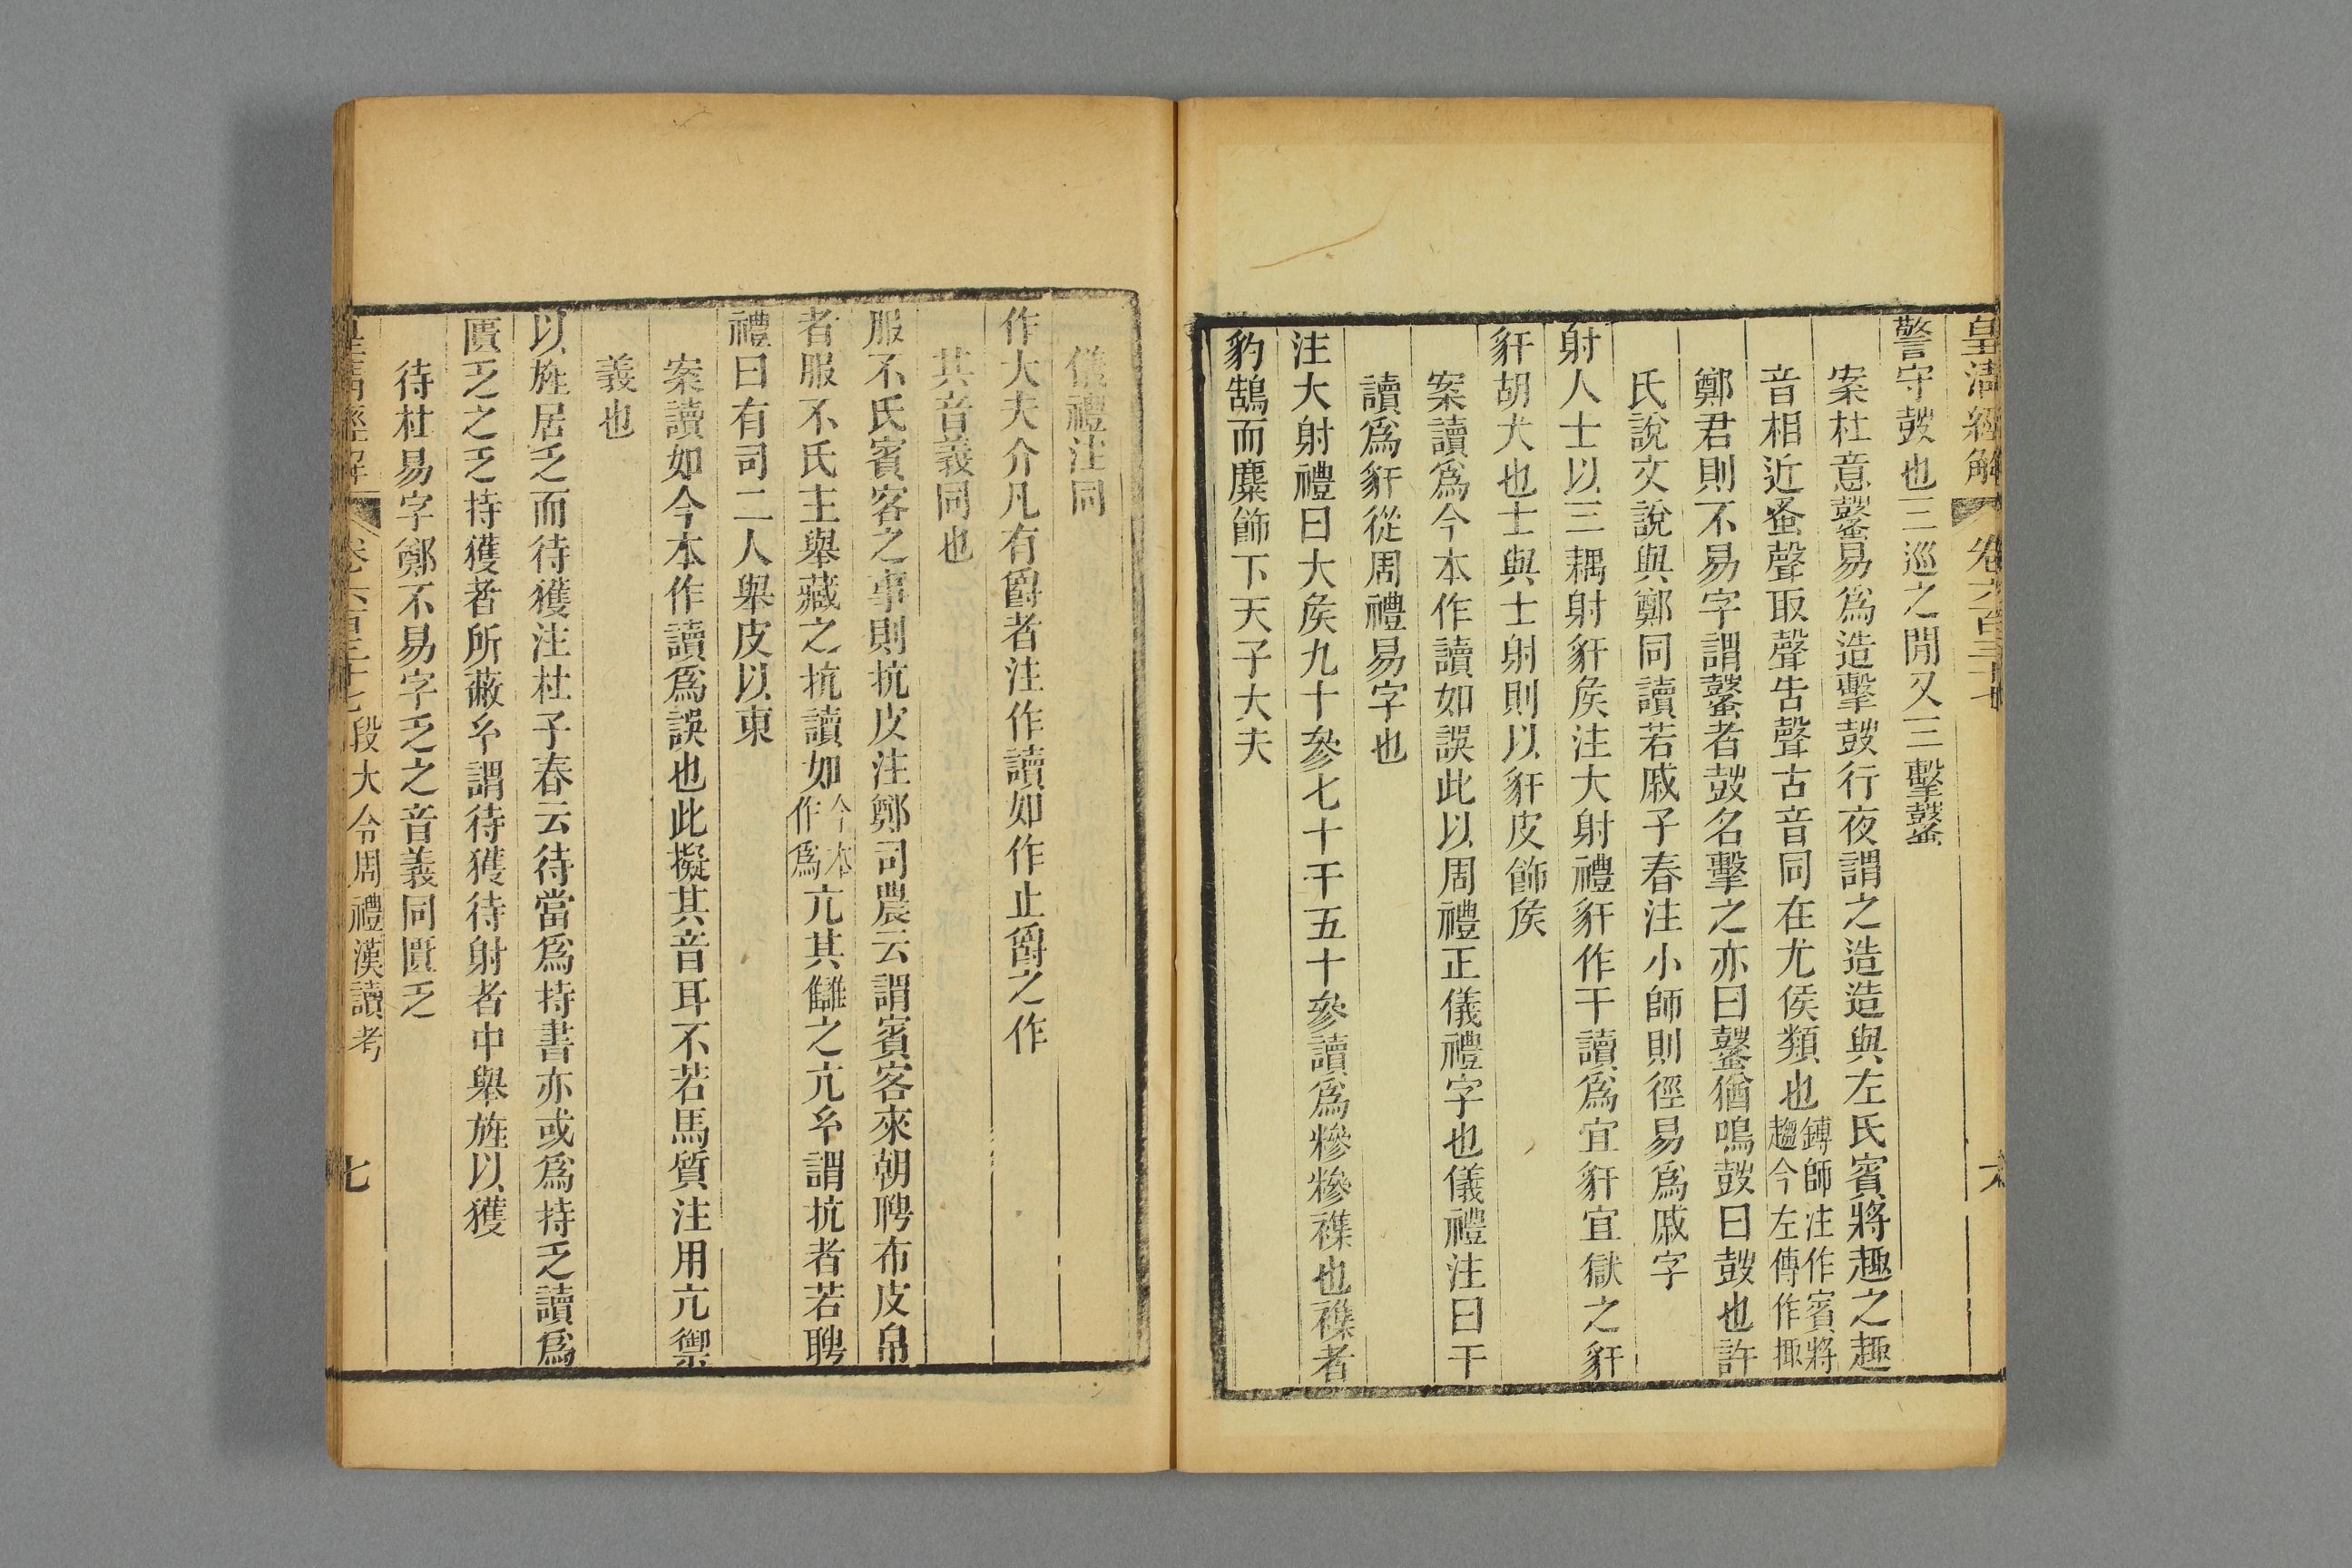 皇清經解 卷六百三十七 六
警守鼓也三巡之閒又三擊鼜
案杜意鼜易爲造擊鼓行夜謂之造造與左氏賓將趣之趣
音相近蚤聲取聲告聲古音同在尤侯類也鎛師注作賓將趨今左傳作掫
鄭君則不易字謂鼜者鼓名擊之亦曰鼜猶鳴鼓曰鼓也許
氏說文說與鄭同讀若戚子春注小師則徑易爲戚字
射人士以三耦射豻矦注大射禮豻作干讀爲宜豻宜獄之豻
豻胡犬也士與士射則以豻皮飾矦
案讀爲今本作讀如誤此以周禮正儀禮字也儀禮注曰干
讀爲豻從周禮易字也
注大射禮曰大矦九十參七十干五十參讀爲糝糝襍也襍者
豹鵠而麋飾下天子大夫
儀禮注同
作大夫介凡有爵者注作讀如作止爵之作
其音義同也
服不氏賓客之事則抗皮注鄭司農云謂賓客來朝聘布皮帛
者服不氏主舉藏之抗讀如今本作爲亢其讎之亢玄謂抗者若聘
禮曰有司二人舉皮以東
案讀如今本作讀爲誤也此擬其音耳不若馬質注用亢禦
義也
以旌居乏而待獲注杜子春云待當爲持書亦或爲持乏讀爲
匱乏之乏持獲者所蔽玄謂待獲待射者中舉旌以獲
待杜易字鄭不易字乏之音義同匱乏
皇淸經解 卷六百三十七 段大令周禮漢讀考 七